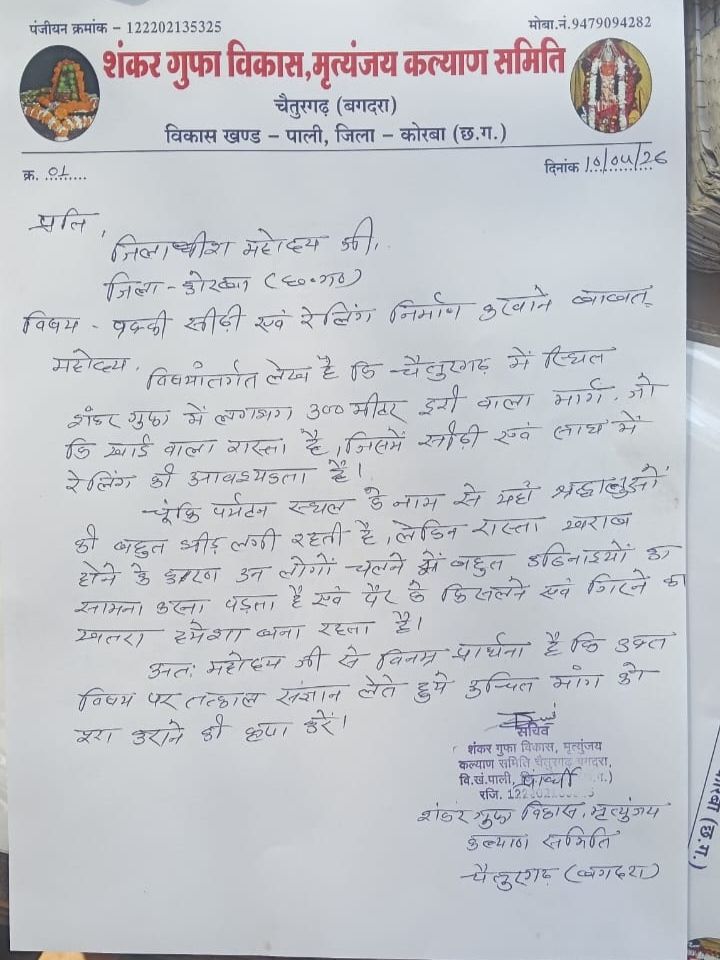 पंजीयन क्रमांक – 122202135325
मोबा.नं.9479094282
शंकर गुफा विकास,मृत्यंजय कल्याण समिति
चैतुरगढ़ (बगदरा)
विकास खण्ड – पाली, जिला – कोरबा (छ.ग.)
क्र. 01
दिनांक 10/04/26
प्रति,
जिलाधीश महोदय जी,
जिला - कोरबा (छ०ग०)
विषय - पक्की सीढ़ी एवं रेलिंग निर्माण करवाने बाबत्
महोदय,
विषयांतर्गत लेख है कि चैतुरगढ़ में स्थित
शंकर गुफा में लगभग 300 मीटर दूरी वाला मार्ग, जो
कि खाई वाला रास्ता है, जिसमें सीढ़ी एवं साथ में
रेलिंग की आवश्यकता है।
चूंकि पर्यटन स्थल के नाम से यहाँ श्रद्धालुओं
की बहुत भीड़ लगी रहती है, लेकिन रास्ता खराब
होने के कारण उन लोगों चलने में बहुत कठिनाइयों का
सामना करना पड़ता है एवं पैर के फिसलने एवं गिरने का
खतरा हमेशा बना रहता है।
अतः महोदय जी से विनम्र प्रार्थना है कि उक्त
विषय पर तत्काल संज्ञान लेते हुये उचित मांग को
पूरा कराने की कृपा करें।
सचिव
शंकर गुफा विकास, मृत्युंजय
कल्याण समिति चैतुरगढ़ बगदरा,
वि.खं.पाली,
रजि.
प्रार्थी
शंकर गुफा विकास, मृत्युंजय
कल्याण समिति
चैतुरगढ़ (बगदरा)
(छ.ग.)